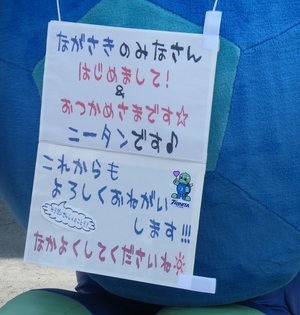 ながさきのみなさん
はじめまして!
&
おつかめさまです☆
ニータンです♪
これからも
よろしくおねがい
します!!!
なかよくしてくださいね